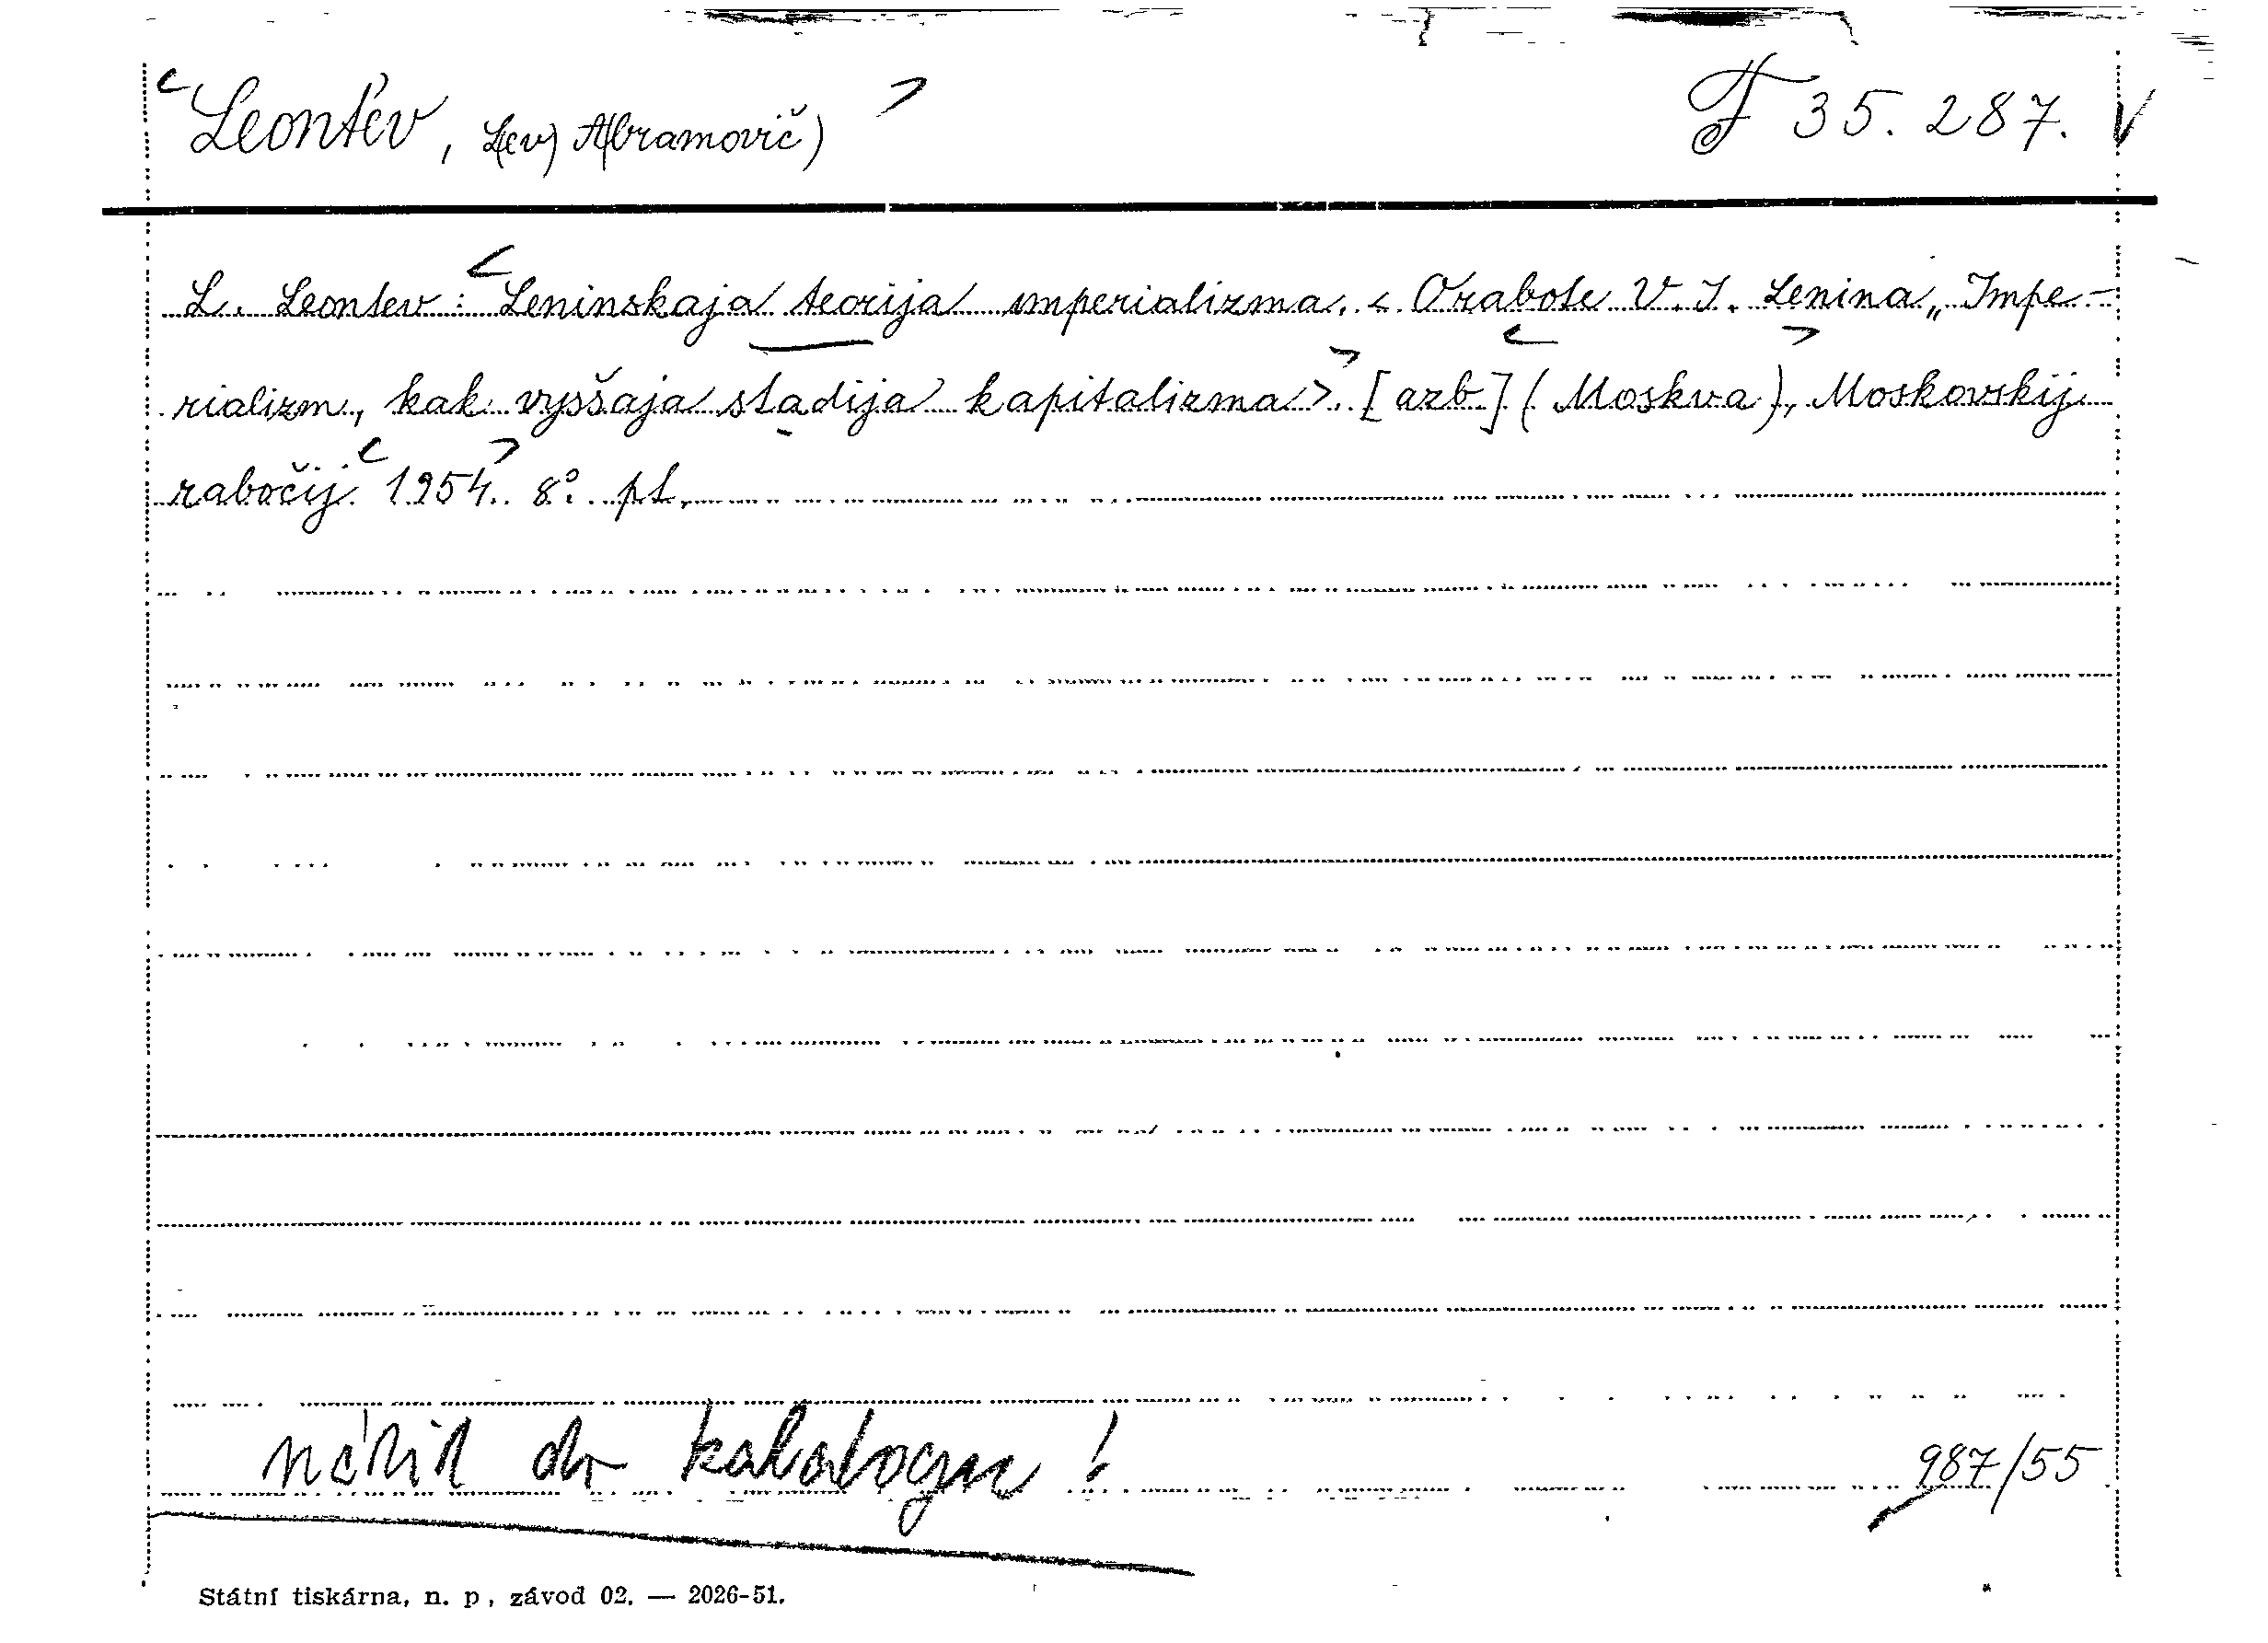 <Leontěv, L(ev) A(bramovič)> F 35.287. V
L. Leontev: <Leninskaja teorija imperializma. < O rabote V. I. Lenina „Impe-
rializm, kak vysšaja stadija kapitalizma>.> [azb.] <(Moskva),> Moskovskij
rabočij <1954.> 8°. pt.
do katalogu!
987/55
Státní tiskárna, n. p., závod 02. — 2026-51.